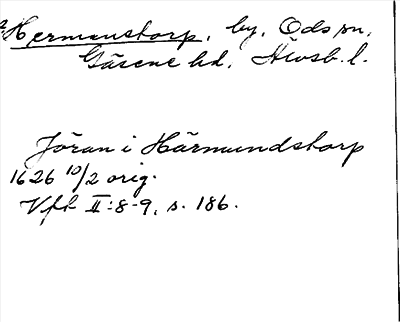 Hermanstorp, by, Ods sn,
Gäsene hd, Älvsb. l.
Jöran i Härmundstorp
1626 10/2 orig.
Vft II:8-9, s. 186.